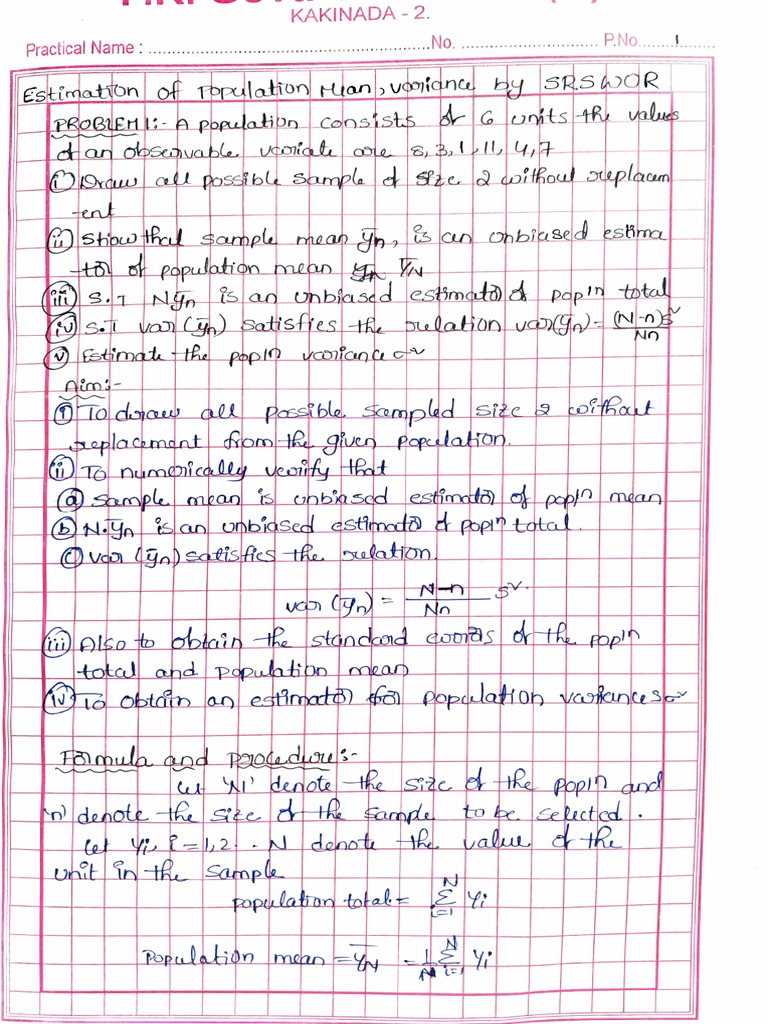 KAKINADA - 2.
Practical Name : ........ No. ........ P.No. 1
Estimation of Population Mean, variance by SRSWOR
PROBLEM 1:- A population consists of 6 units the values
of an observable variate are 8, 3, 1, 11, 4, 7
(i) Draw all possible sample of size 2 without replacem
-ent
(ii) Show that sample mean ȳn, is an unbiased estima
-tor of population mean ȲN
(iii) S.T Nȳn is an unbiased estimator of popln total
(iv) S.T var(ȳn) satisfies the relation var(ȳn) = (N-n)s²/Nn
(v) Estimate the popln variance σ²
Aim:-
(i) To draw all possible sampled size 2 without
replacement from the given population.
(ii) To numerically verify that
(a) Sample mean is unbiased estimator of popln mean
(b) N.ȳn is an unbiased estimator of popln total.
(c) var (ȳn) satisfies the relation.
var (ȳn) = N-n/Nn s².
(iii) Also to obtain the standard errors of the popln
total and population mean
(iv) To obtain an estimator for population variances σ²
Formula and procedure:-
Let 'N' denote the size of the popln and
'n' denote the size of the sample to be selected.
Let Yi, i = 1,2.. N denote the value of the
unit in the sample
population total = N Σ i=1 Yi
Population mean = ȲN = 1/N N Σ i=1 Yi